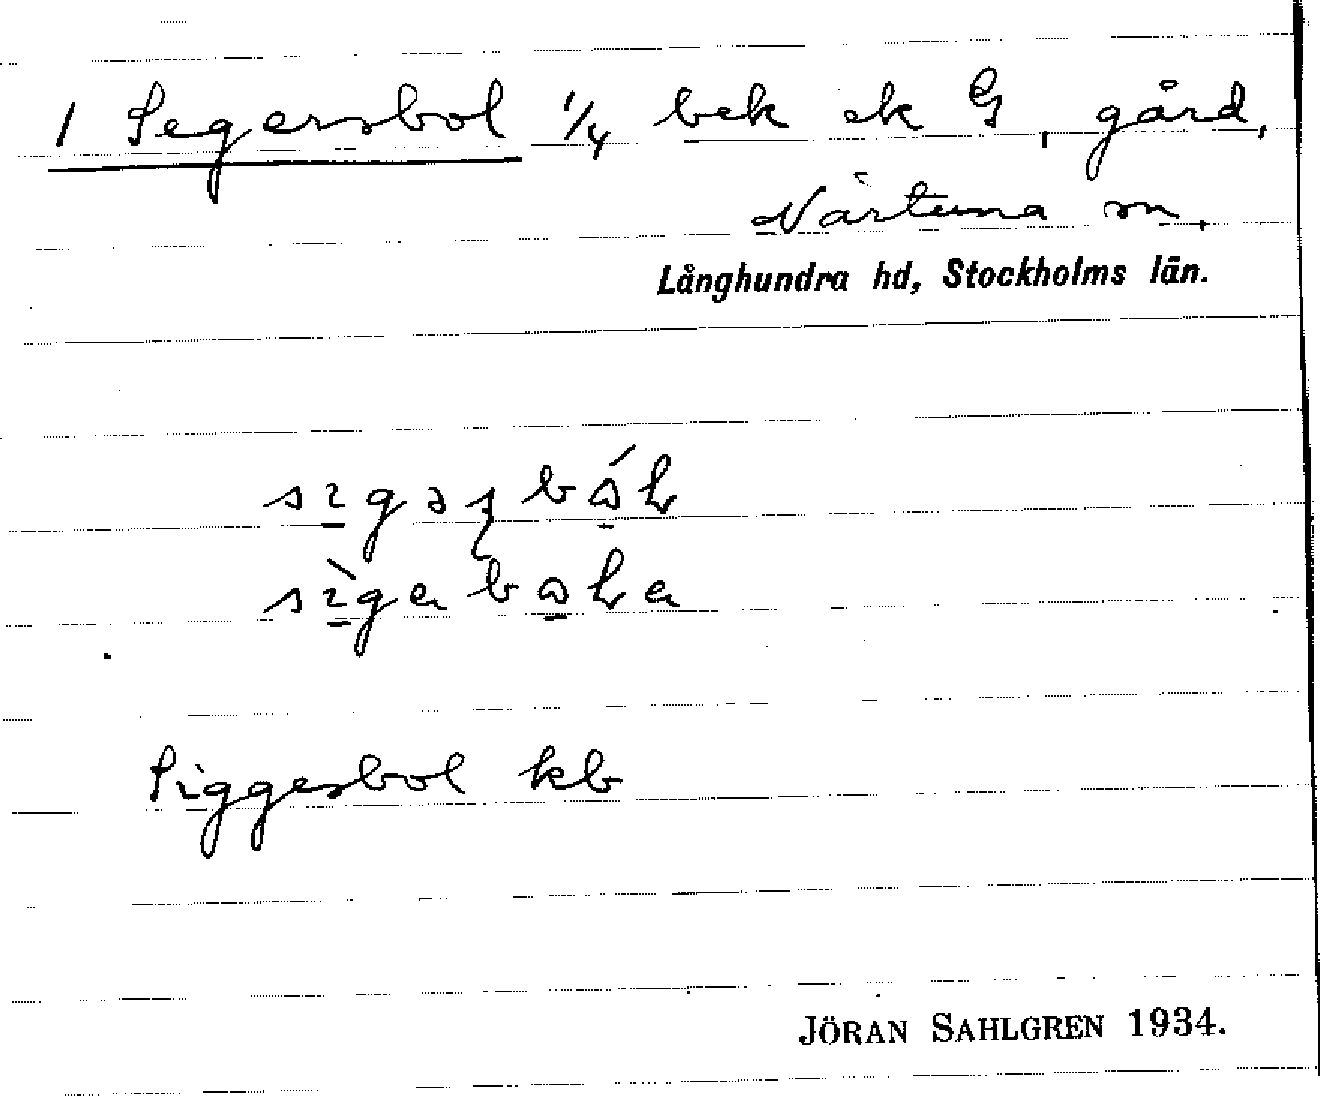 1 Segersbol 1/4 bek ek G, gård,
Närtuna sn,
Långhundra hd, Stockholms län.
Siggesbol kb
JÖRAN SAHLGREN 1934.